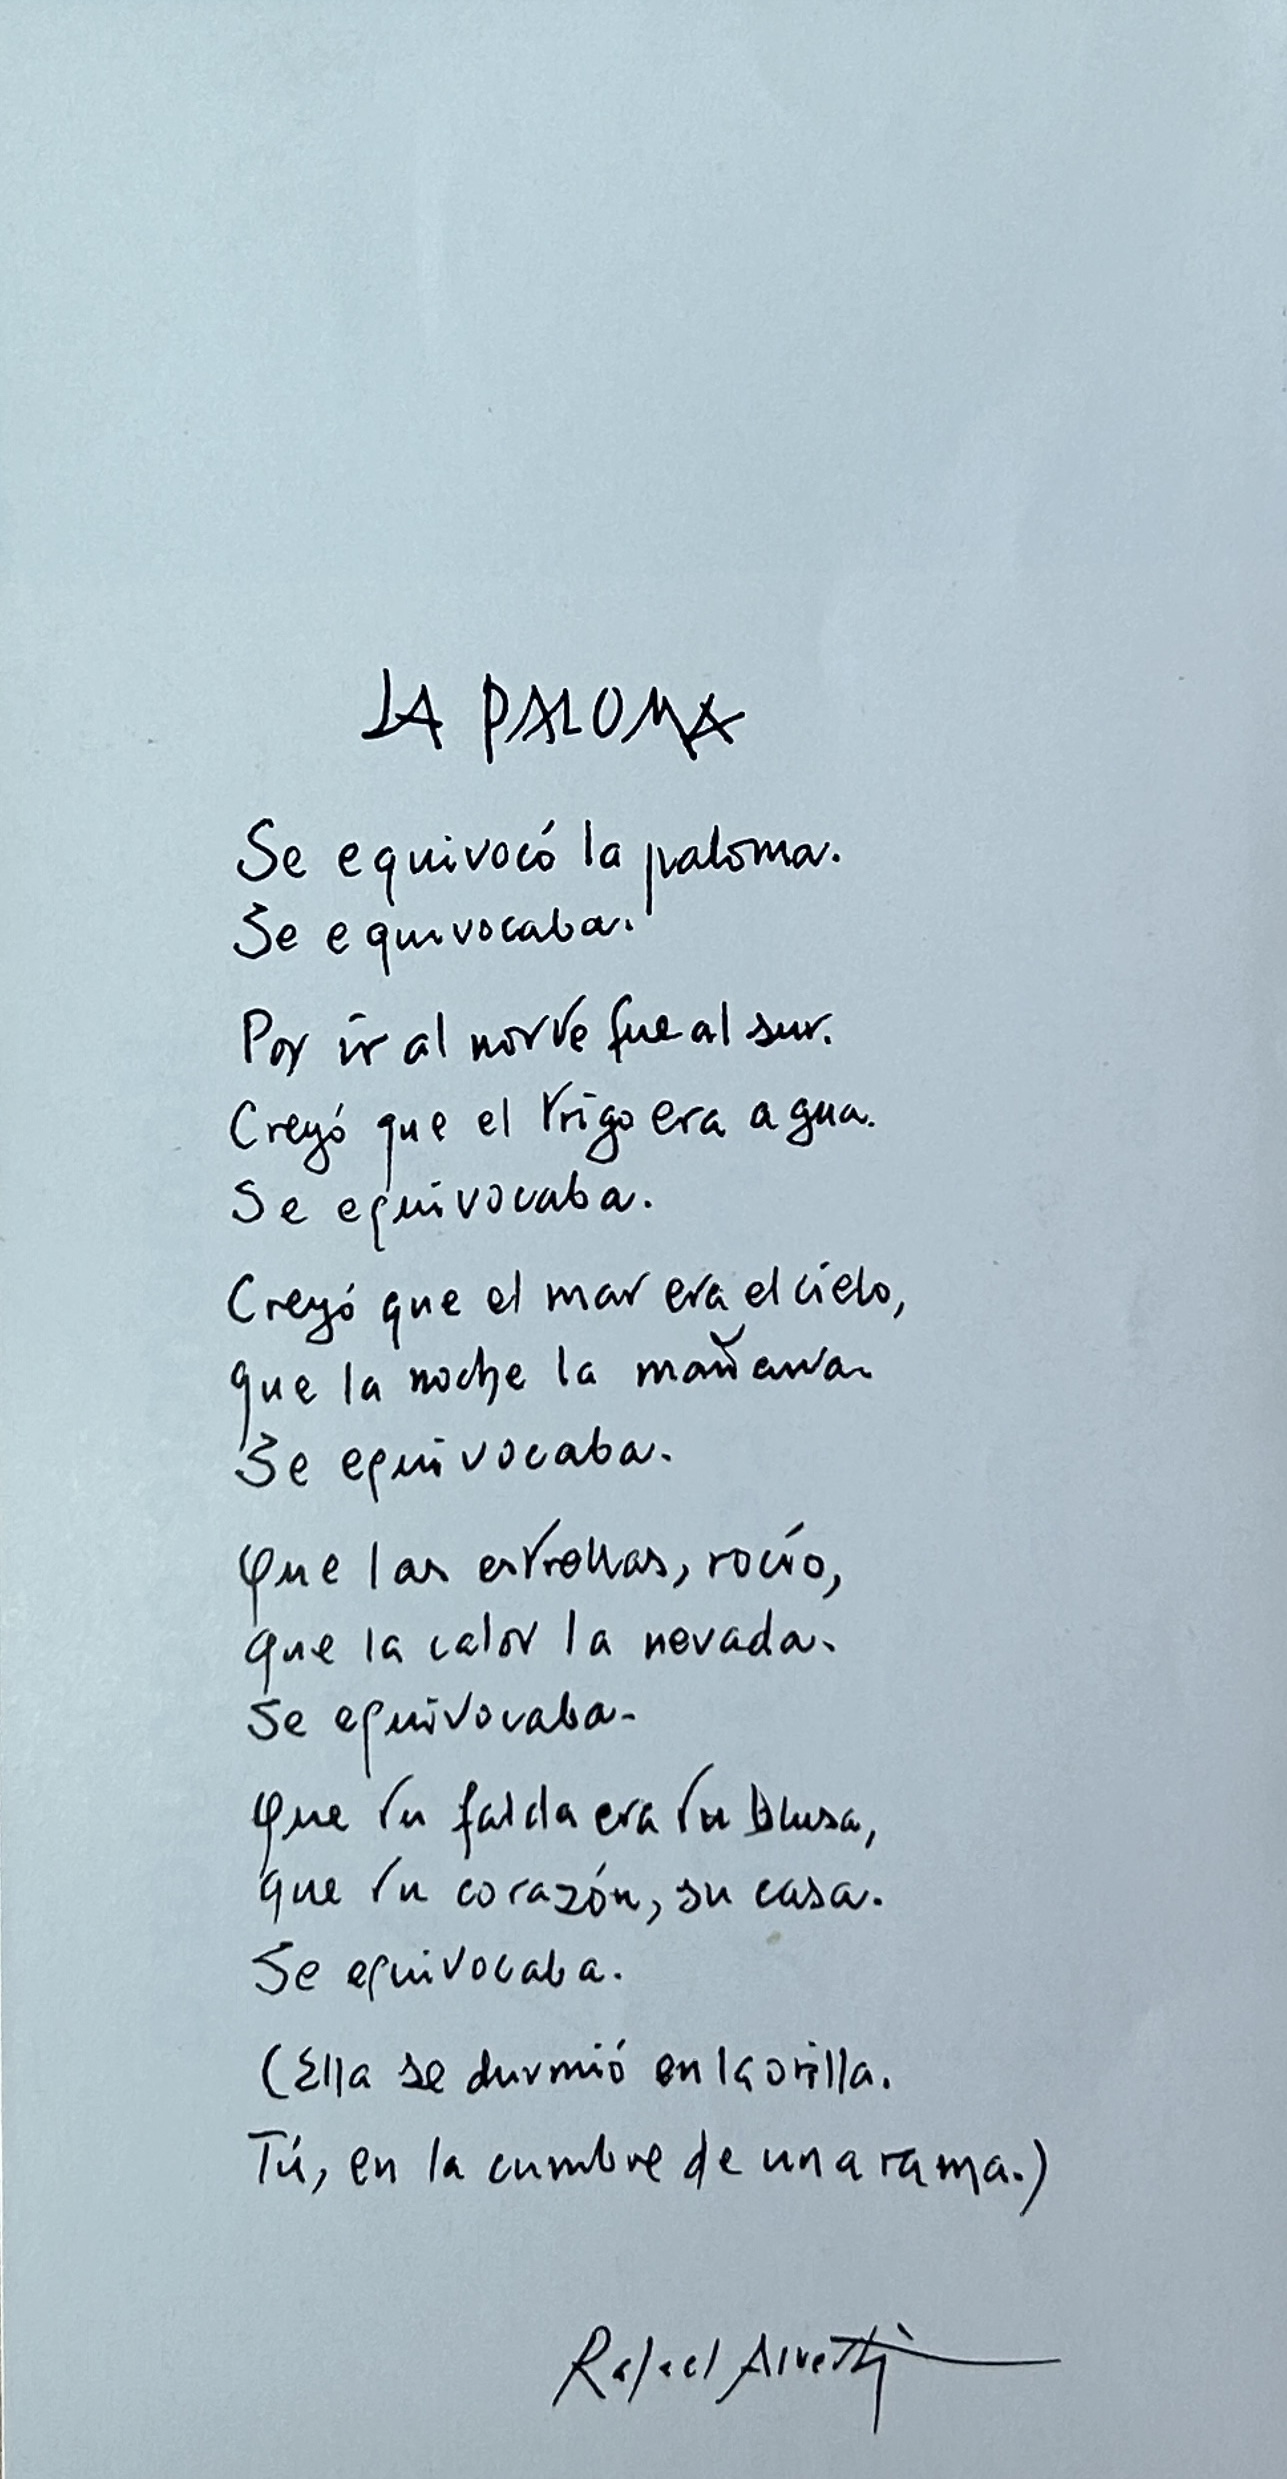 LA PALOMA
Se equivocó la paloma.
Se equivocaba.
Por ir al norte fue al sur.
Creyó que el trigo era agua.
Se equivocaba.
Creyó que el mar era el cielo,
que la noche la mañana.
Se equivocaba.
Que las estrellas, rocío,
que la calor la nevada.
Se equivocaba.
Que tu falda era tu blusa,
que tu corazón, su casa.
Se equivocaba.
(Ella se durmió en la orilla.
Tú, en la cumbre de una rama.)
Rafael Alberti